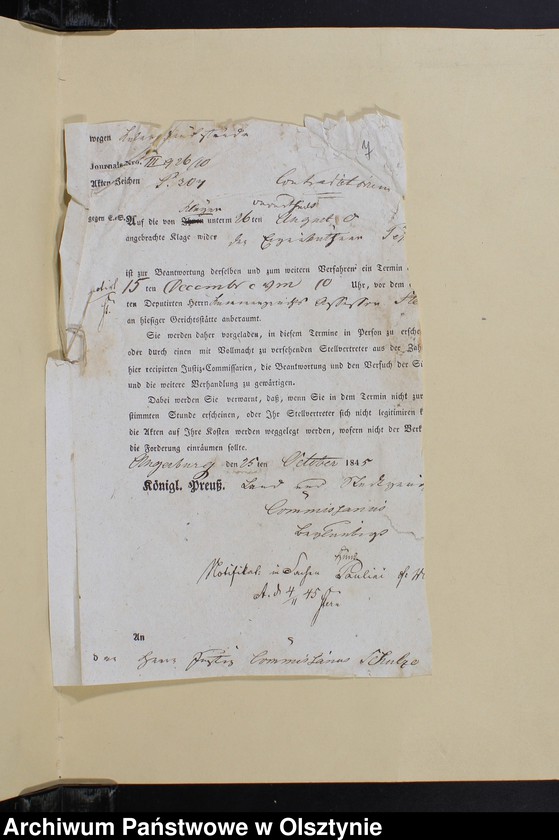 wegen
7
Journals-Nro. III 926/10
Akten-Zeichen P. 204
Contradictorium
gegen E.S. Auf die von unterm 26ten August
angebrachte Klage wider
ist zur Beantwortung derselben und zum weitern Verfahren ein Termin
15 ten December c. Vm 10 Uhr, vor dem
ten Deputirten Herrn Assessor
an hiesiger Gerichtsstätte anberaumt.
Sie werden daher vorgeladen, in diesem Termine in Person zu ersche
oder durch einen mit Vollmacht zu versehenden Stellvertreter aus der Zah
hier recipirten Justiz-Commissarien, die Beantwortung und den Versuch der Si
und die weitere Verhandlung zu gewärtigen.
Dabei werden Sie verwarnt, daß, wenn Sie in dem Termin nicht zur
stimmten Stunde erscheinen, oder Ihr Stellvertreter sich nicht legitimiren k
die Akten auf Ihre Kosten werden weggelegt werden, wofern nicht der Verk
die Forderung einräumen sollte.
Angerburg den 25 ten October 1845
Königl. Preuß. Land und Stadtgeri
Commissarius
Notifikat. in Sachen
4/11 45
An
den Herrn Justiz Commissarius Schulze
Archiwum Państwowe w Olsztynie